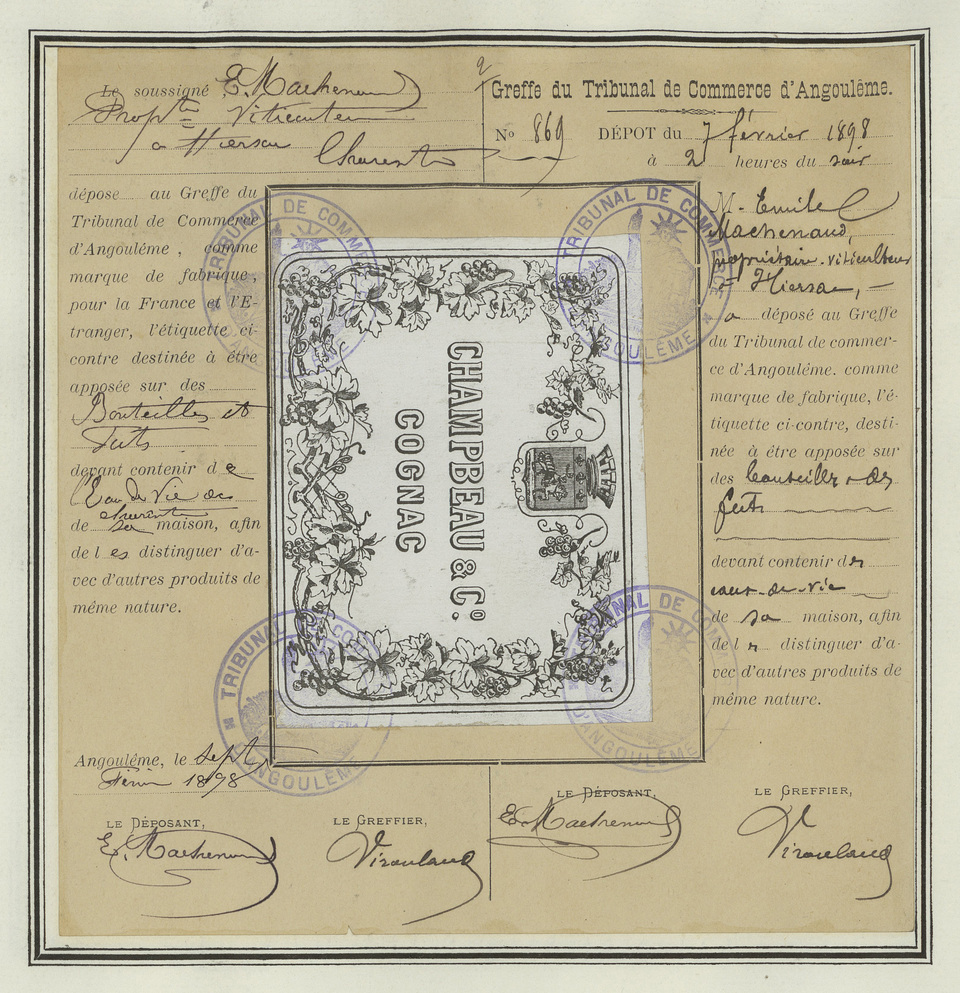 Le soussigné E. Machenaud
Propre Viticulteur
à Hiersac Charente
dépose au Greffe du
Tribunal de Commerce
d'Angoulême, comme
marque de fabrique,
pour la France et l'E-
tranger, l'étiquette ci-
contre destinée à être
apposée sur des
Bouteilles et
Futs
devant contenir de
l'Eau de Vie des
charente
de sa maison, afin
de les distinguer d'a-
vec d'autres produits de
même nature.
Angoulême, le sept
Février 1898
LE DÉPOSANT,
E. Machenaud
LE GREFFIER,
Viroulaud
Greffe du Tribunal de Commerce d'Angoulême.
No 869 DÉPOT du 7 février 1898
à 2 heures du soir
M. Emile
Machenaud,
propriétaire-viticulteur
à Hiersac,
a déposé au Greffe
du Tribunal de commer-
ce d'Angoulême. comme
marque de fabrique, l'é-
tiquette ci-contre, desti-
née à être apposée sur
des bouteilles & des
futs
devant contenir des
eaux-de-vie
de sa maison, afin
de les distinguer d'a-
vec d'autres produits de
même nature.
LE DÉPOSANT,
E. Machenaud
LE GREFFIER,
Viroulaud
CHAMPBEAU & Co.
COGNAC
TRIBUNAL DE COMMERCE
D'ANGOULÊME
TRIBUNAL DE COMMERCE
D'ANGOULÊME
TRIBUNAL DE COM
D'ANGOULÊME
TRIBUNAL DE COM
D'ANGOULÊME